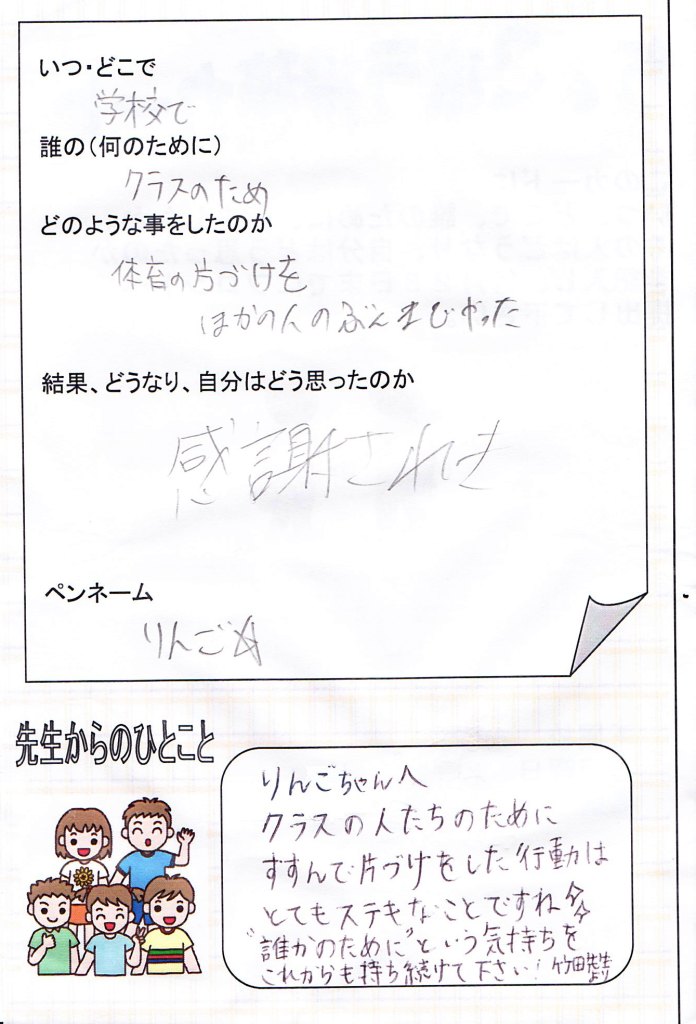 いつ・どこで
学校で
誰の(何のために)
クラスのため
どのような事をしたのか
体育の片づけを
ほかの人のぶんまでやった
結果、どうなり、自分はどう思ったのか
感謝された
ペンネーム
りんご☆
先生からのひとこと
りんごちゃんへ
クラスの人たちのために
すすんで片づけをした行動は
とてもステキなことですね
"誰かのために"という気持ちを
これからも持ち続けて下さい! 竹田先生より